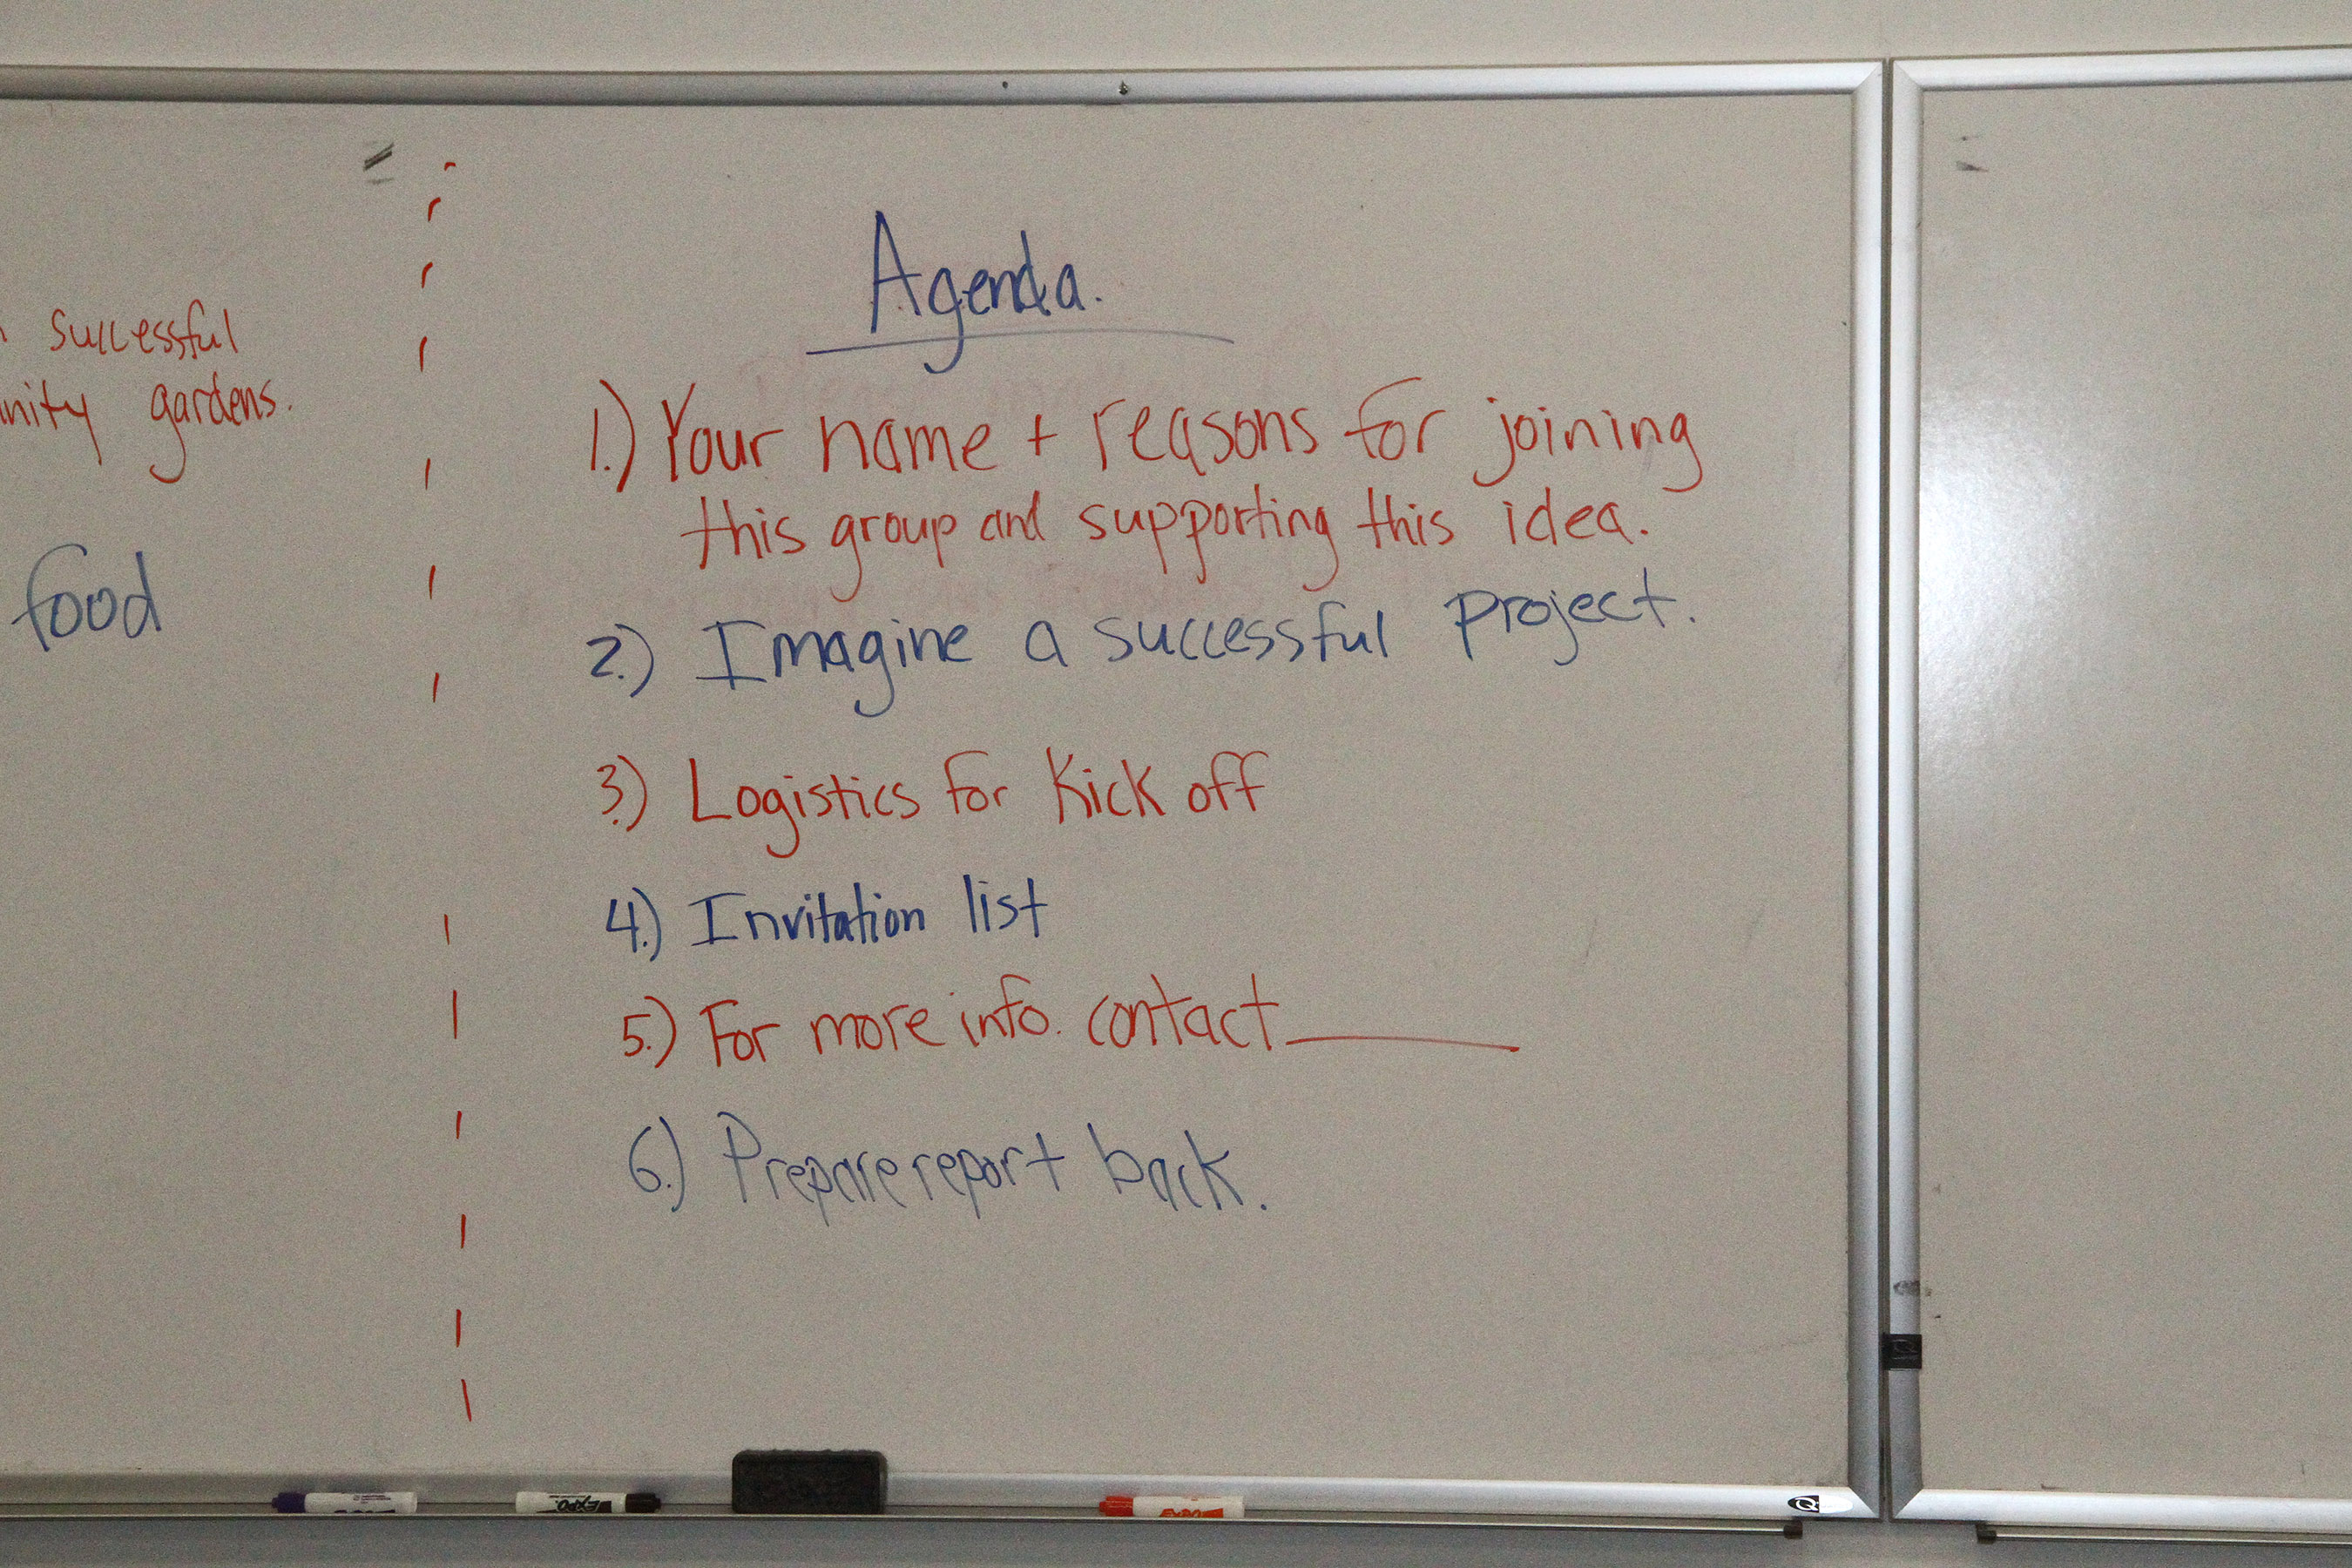 successful
nity gardens.
food
Agenda.
1.) Your name + reasons for joining
this group and supporting this idea.
2.) Imagine a successful project.
3.) Logistics for Kick off
4.) Invitation list
5.) For more info. contact______
6.) Prepare report back.
EXPO
EXPO
Q